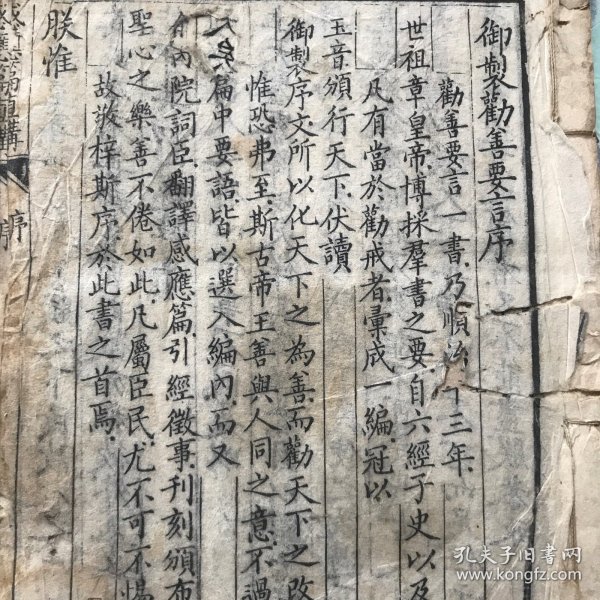 御製勸善要言序
勸善要言一書乃順治十三年
世祖章皇帝博採羣書之要自六經子史以及
凡有當於勸戒者彙成一編冠以
玉音頒行天下伏讀
御製序文所以化天下之為善而勸天下之改
惟恐弗至斯古帝王善與人同之意不過
篇中要語皆以選入編內而又
內院詞臣翻譯感應篇引經徵事刊刻頒布
聖心之樂善不倦如此凡屬臣民尤不可不惕
故敬梓斯序於此書之首焉
朕惟
應篇直講
序
孔夫子旧书网
www.kongfz.com